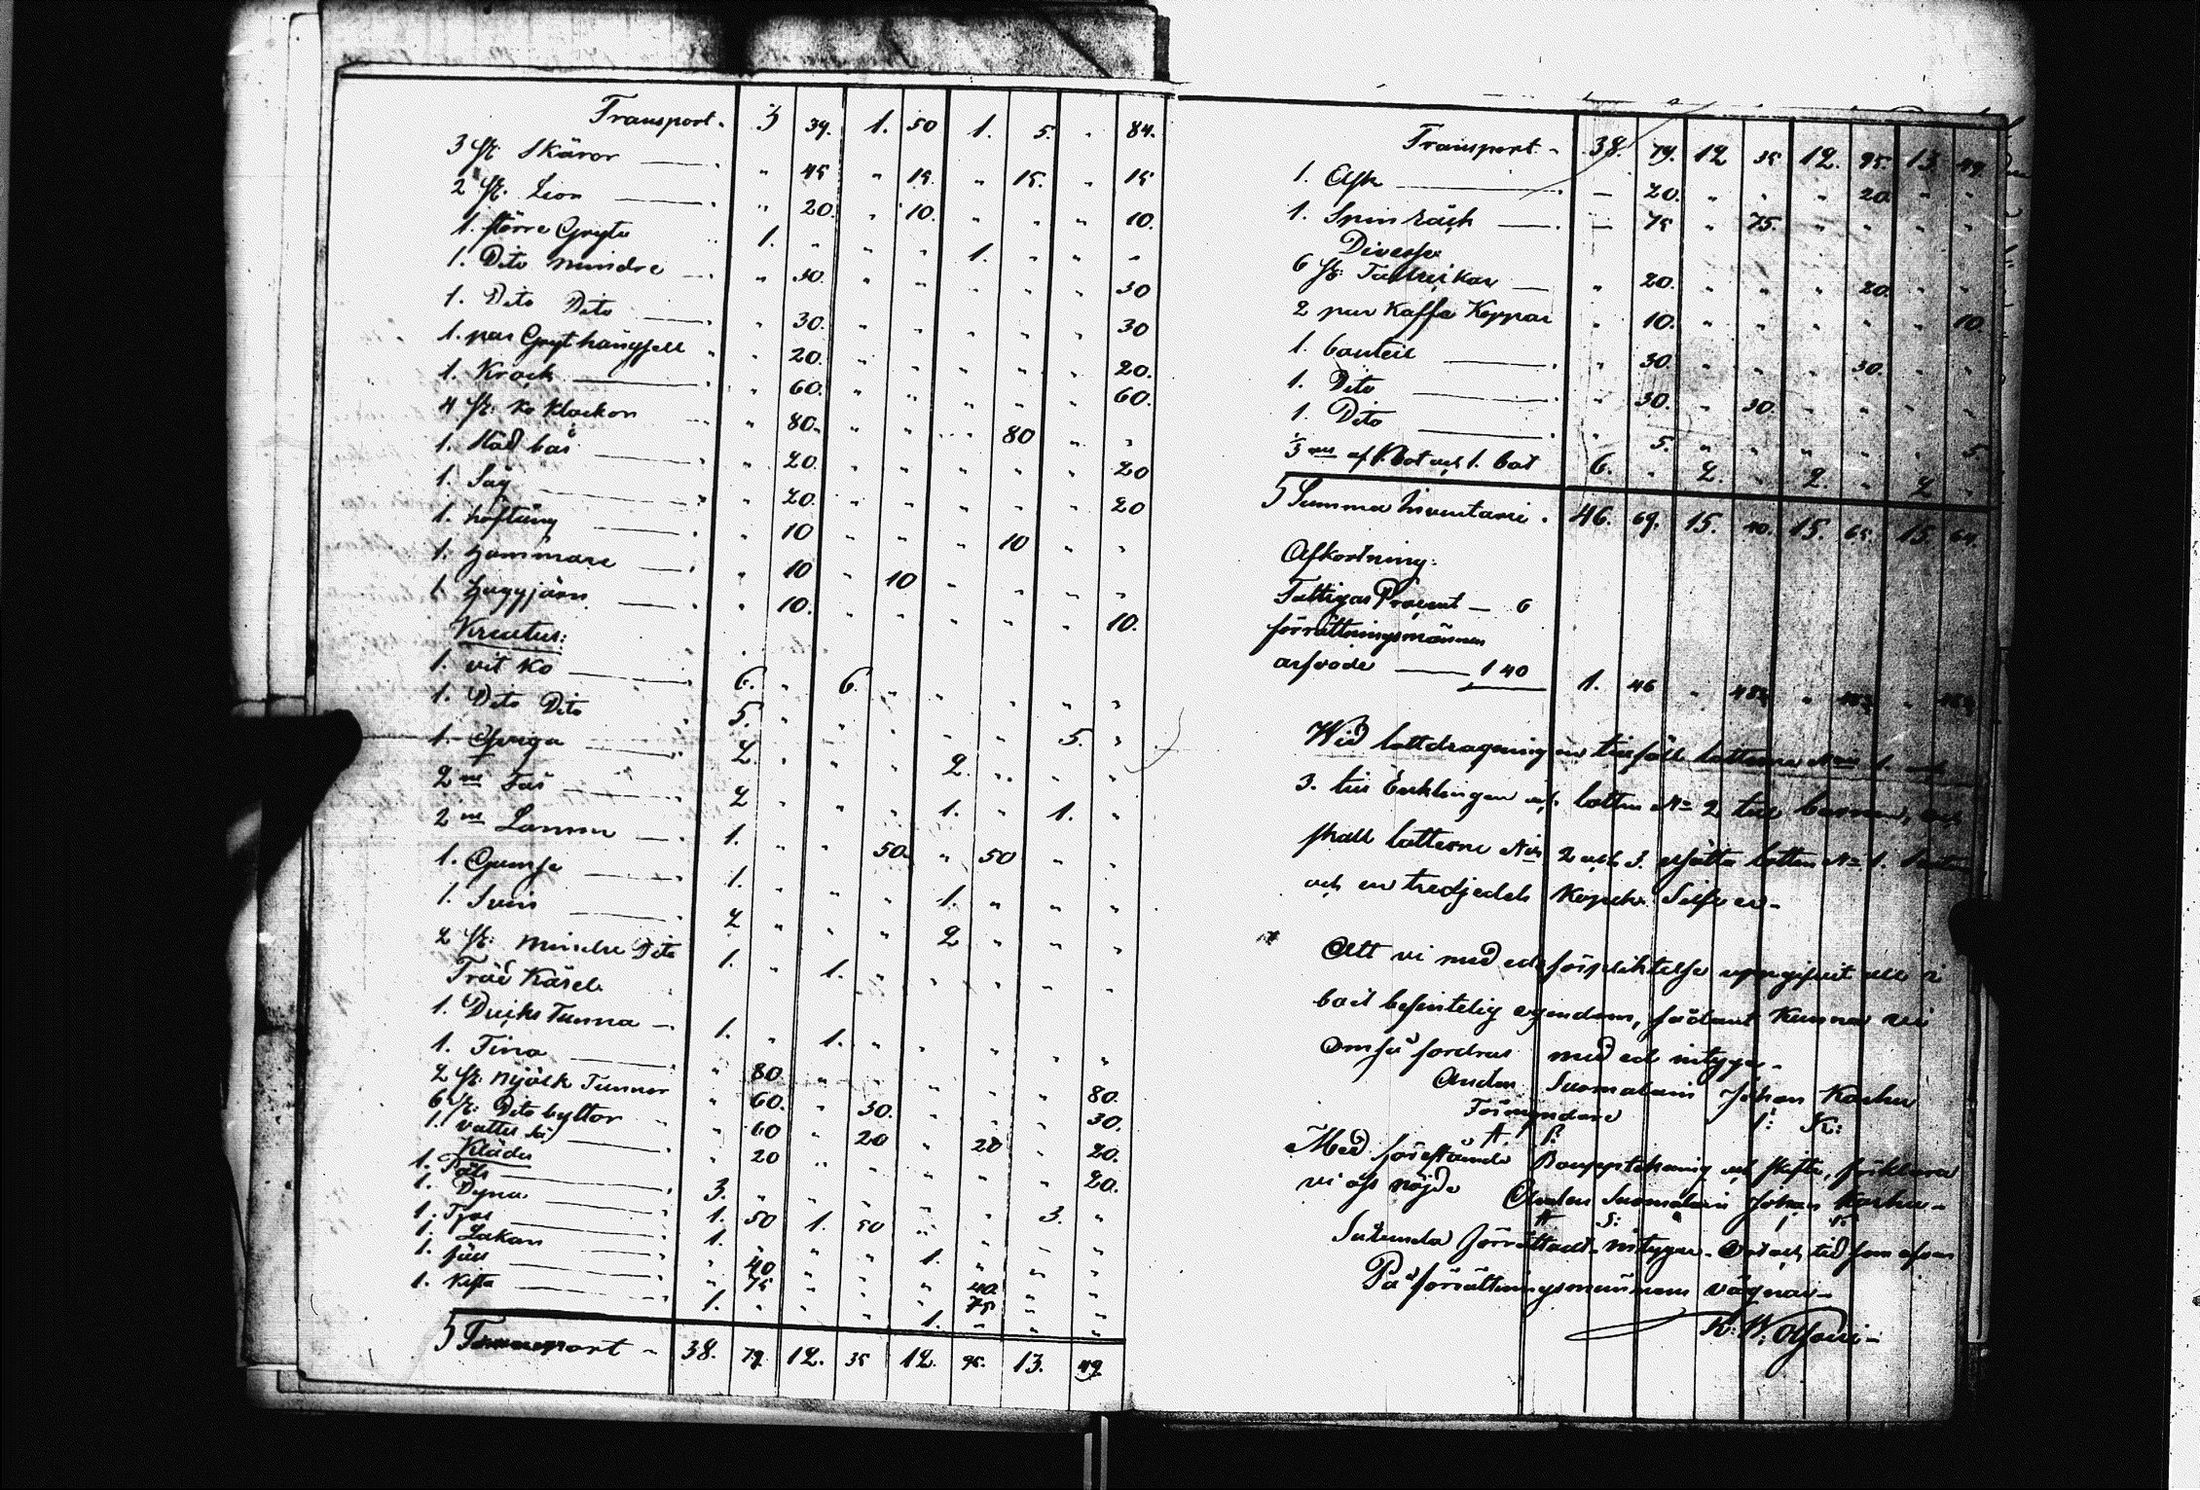 Transport. 3 39. 1. 50 1. 5. " 84.
3 st: Skäror " 45 " 15. " 15. " 15
2 st. Lior " 20. " 10. " " " 10.
1. större Gryta 1. " " " 1. " " "
1. Dito mindre " 30. " " " " " 30
1. Dito Dito " 30. " " " " " 30
1. par Grythängsell " 20. " " " " " 20.
1. Krock " 60. " " " " " 60.
4 st: Ko Klockor " 80. " " " 80 " "
1. " 20. " " " " " 20
1. Såg " 20. " " " " " 20
1. " 10 " " " 10 " "
1. Hammare " 10 " 10 " " " "
1. Huggjärn " 10. " " " " " 10.
Kreatur:
1. vit Ko 6. " 6. " " " " "
1. Dito Dito 5. " " " " " 5. "
1. Qviga 2. " " " 2. " " "
2ne Får 2 " " " 1. " 1. "
2ne Lamm 1. " " 50. " 50 " "
1. Gumse 1. " " " 1. " " "
1. Svin 2 " " " 2 " " "
2 st: mindre Dito 1. " 1. " " " " "
Träd Käril
1. Dricks Tunna 1. " 1. " " " " "
1. Tina " 80. " " " " " 80.
2 st: mjölk Tunnor " 60. " 30. " " " 30.
6 st: Dito byttor " 60 " 20 " 20 " 20.
1. vatten så " 20 " " " " " 20.
Kläder
1. Päls 3. " " " " " 3. "
1. Dyna 1. 50 1. 50 " " " "
1. 1. " " " 1. " " "
1. Lakan " 40 " " " 40. " "
1. " 75 " " " 75 " "
1. Kista 1. " " " 1. " " "
Transport 38. 79. 12. 35 12. 95. 13. 49.
Transport 38. 79. 12 35 12. 95. 13. 49.
1. Ask — 20. " " " 20. " "
1. Spinråck — 75 " 75. " " " "
Diverse
6 st: Tallrikar " 20. " " " 20. " "
2 par Kaffe Koppar " 10. " " " " " 10.
1. bouteil " 30. " " " 30. " "
1. Dito " 30. " 30. " " " "
1. Dito " 5. " " " " " 5.
1/3 af 1. Bot och 1. båt 6. " 2. " 2. " 2 "
Summa Inventarii. 46. 69. 15. 40. 15. 65. 15. 64.
Afkortning:
Fattigas Procent — 6
förrättningsmännen
arfvode 1 40 1. 46
Wid lottdragningen tillföll lotterne Nris 1. och
3. till Enklingen och lotten No 2 till barnen, och
skall lotterne Nris 2 och 3. ersätta lotten No 1.
och en tredjedels Kopek Silfver.
Att vi med edsförpliktelse uppgifvit all i
boet befintelig egendom, sådant kunna vi
om så fordras med ed intyga.
Anders Suomalain Johan Karhu
Förmyndare
Med förestående Bouppteckning och skifte, förklara
vi oss nöjde Anders Suomalain Johan Karhu
Sålunda förrättadt, intygar. Ort och tid som ofvan
På förrättningsmännens vägnar.
K: W.